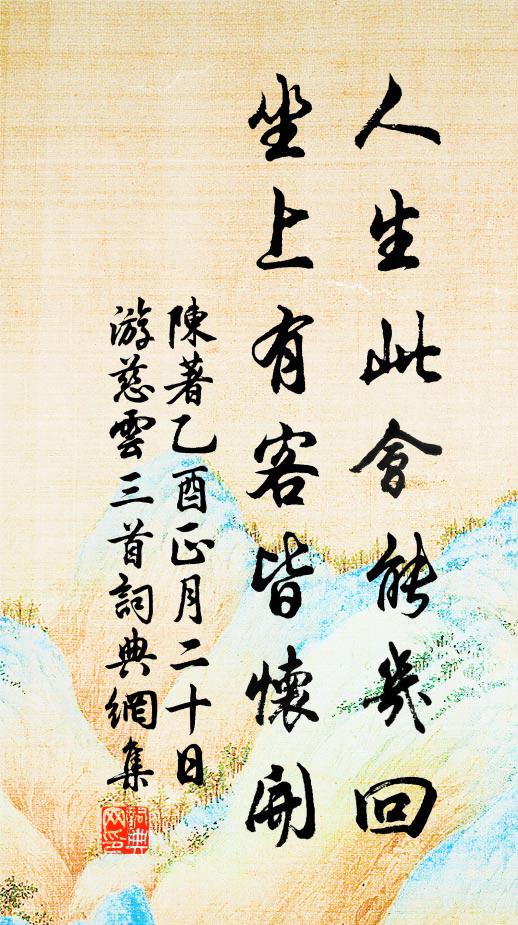 人生此會能幾回
坐上有客皆懷開
陳著乙酉正月二十日
游慈雲三首詞典網集
詞典
网印